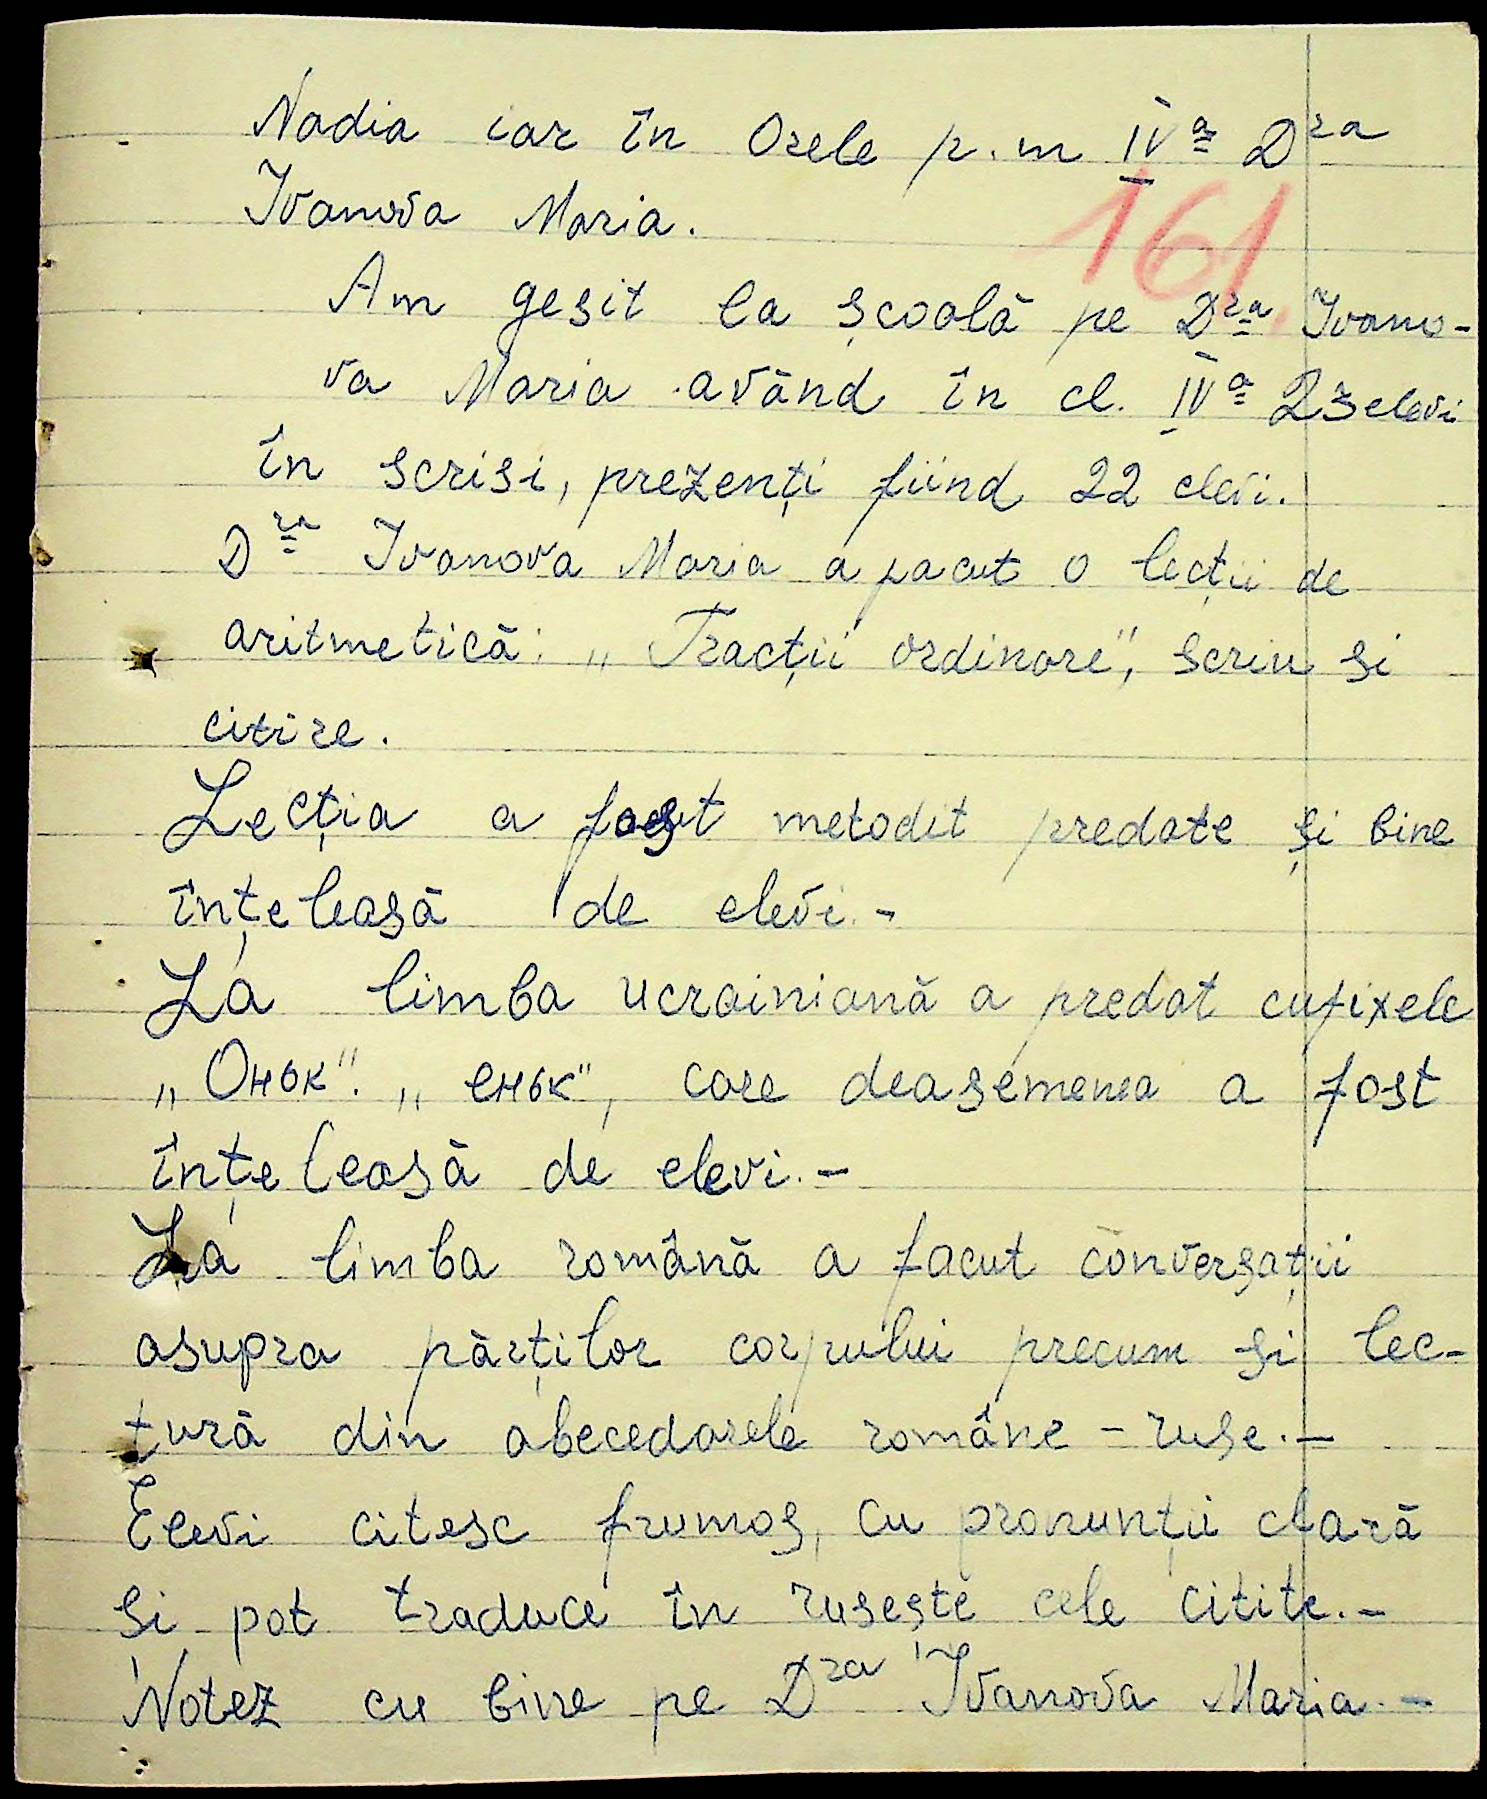 Nadia iar în Orele p.m IVa Dra
161
Ivanova Maria.
Am gesit la școolă pe Dra Ivano-
va Maria având în cl. IVa 23 elevi
în scrisi, prezenți fiind 22 elevi.
Dra Ivanova Maria a facut o lecții de
aritmetică: „Fracții ordinare", scriu si
citire.
Lecția a fost metodit predate și bine
înțeleasă de elevi.-
La limba ucrainiană a predat cufixele
„Оньк". „еньк", care deasemenea a fost
înțeleasă de elevi.-
La limba română a facut conversații
asupra părților corpului precum și lec-
tură din abecedarele române-ruse.-
Elevi citesc frumos, cu pronunții clară
și pot traduce în rusește cele citite.-
Notez cu bine pe Dra Ivanova Maria.-